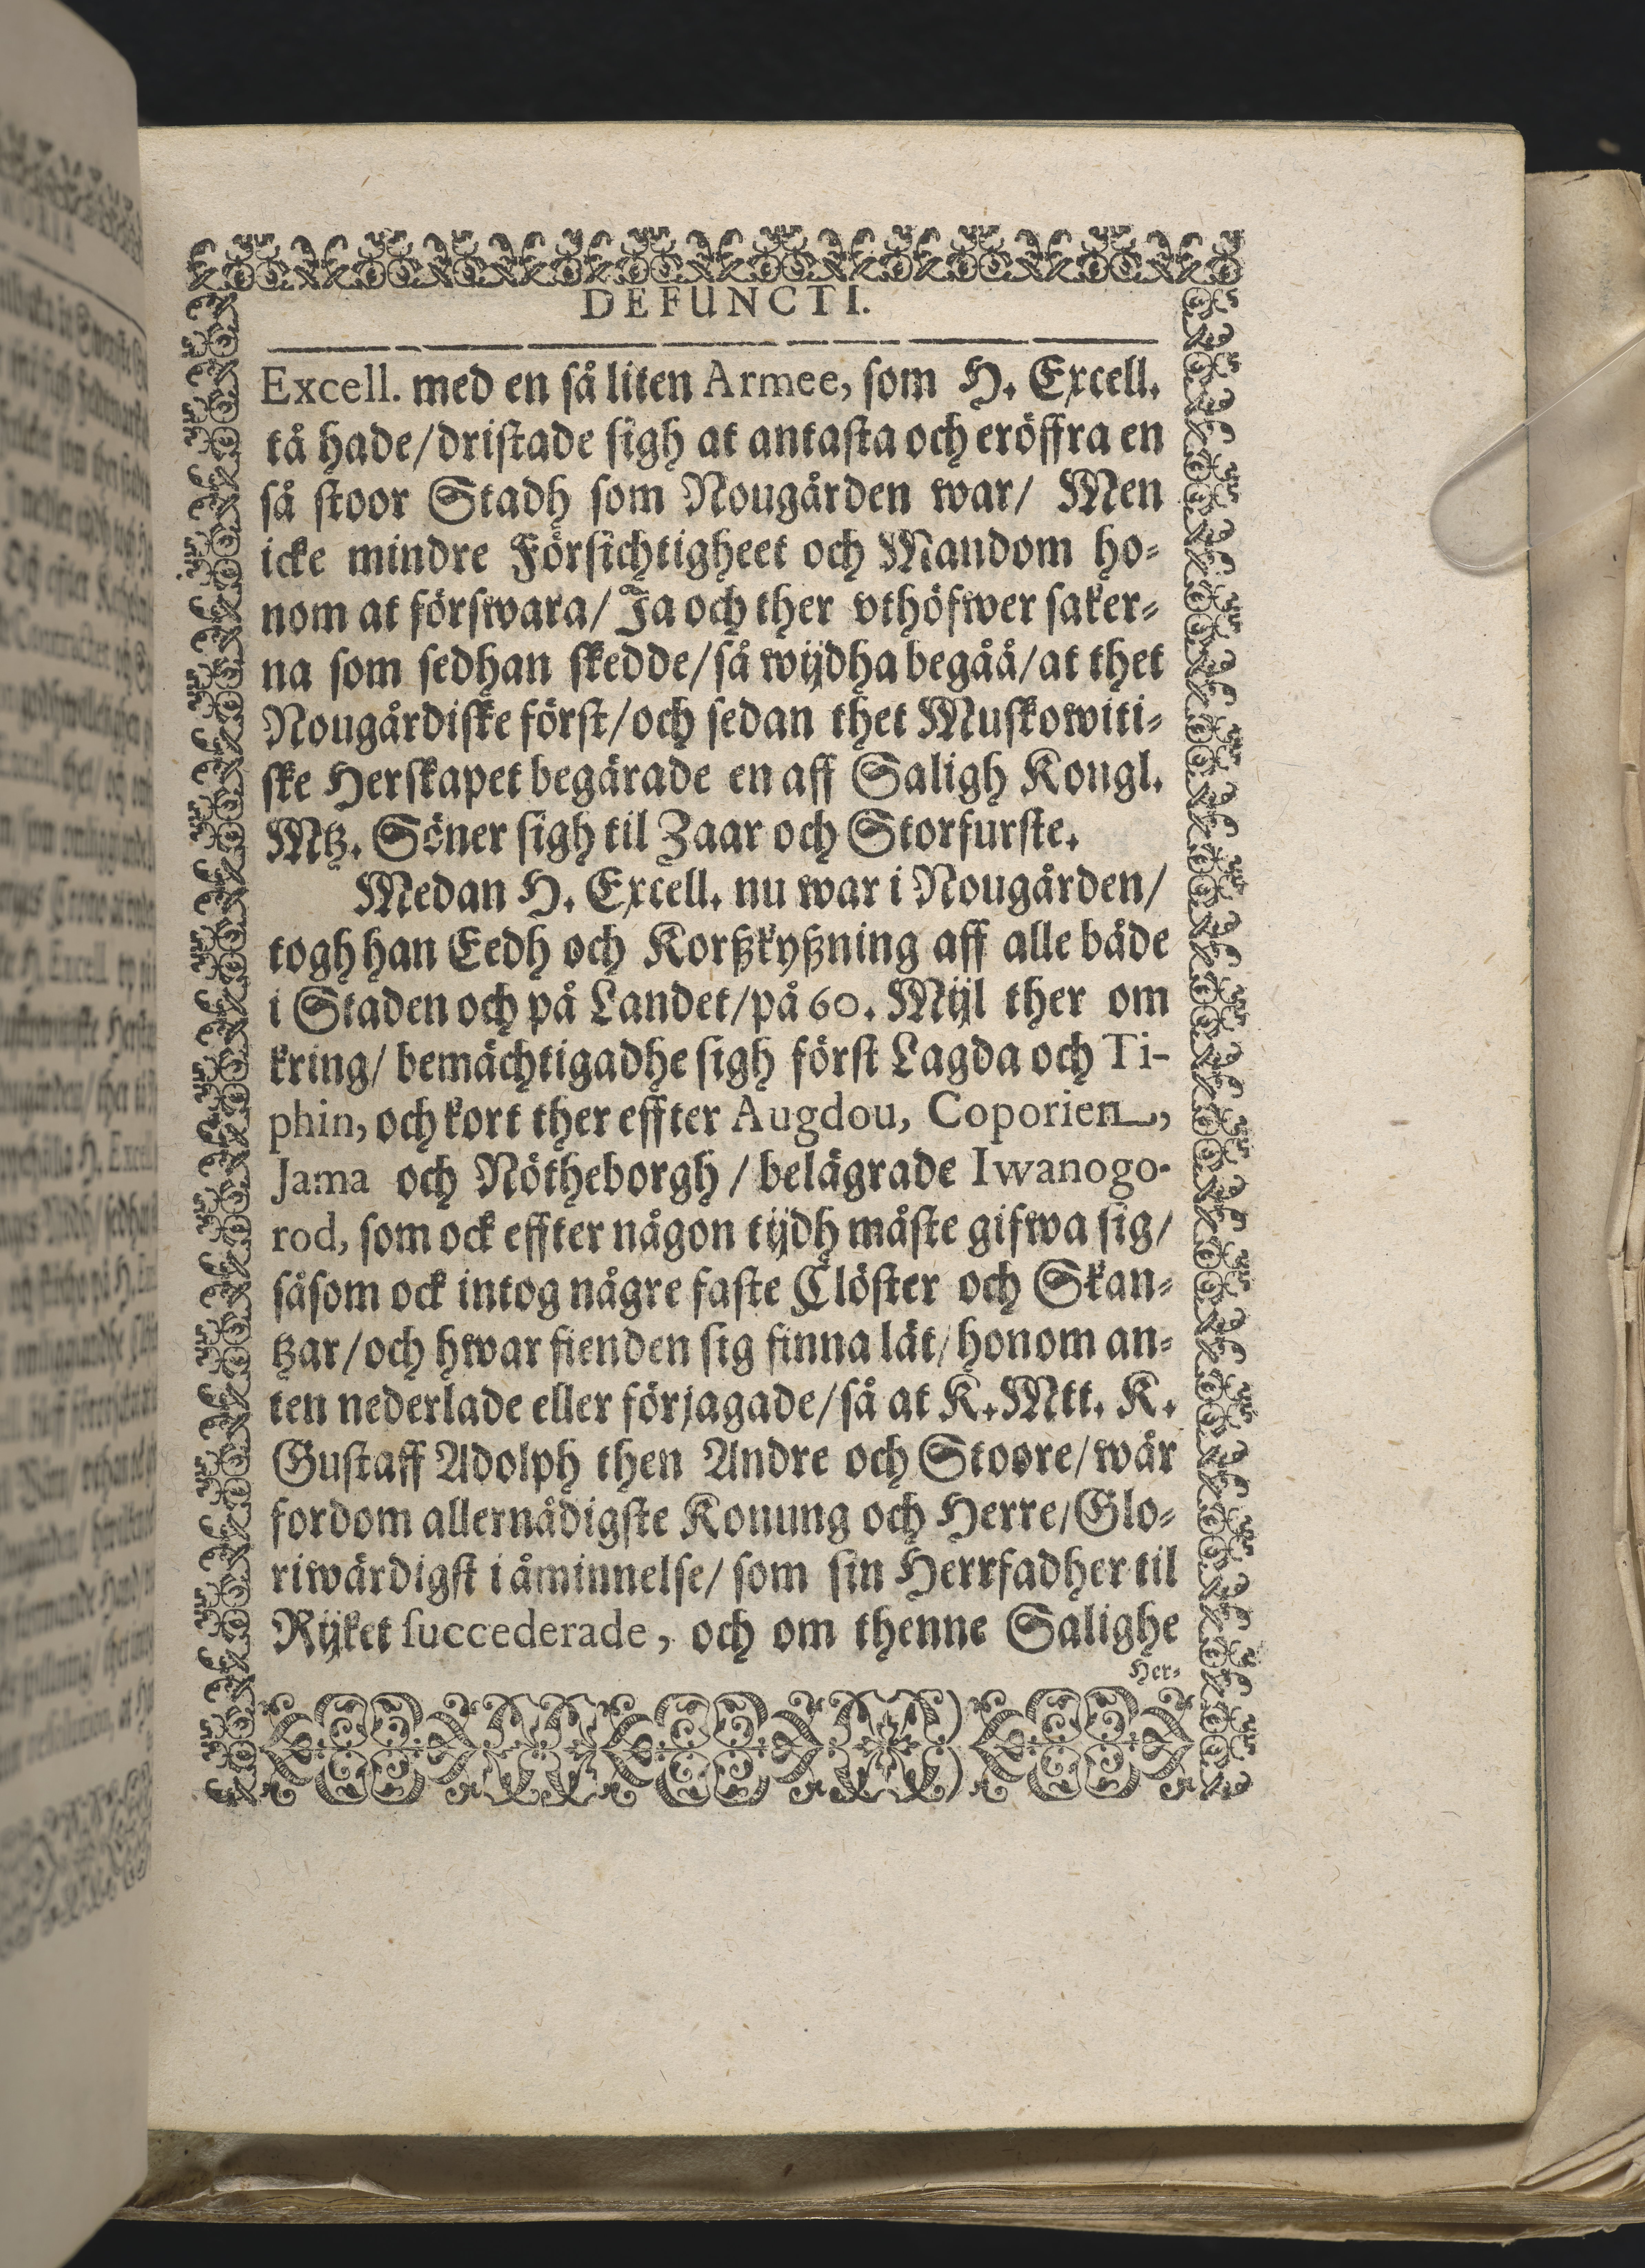 DEFUNCTI.
Excell. med en så liten Armee, som H. Excell.
tå hade/dristade sigh at antasta och eröffra en
så stoor Stadh som Nougården war/ Men
icke mindre Försichtigheet och Mandom ho-
nom at förswara/ Ja och ther vthöfwer saker-
na som sedhan skedde/så wijdha begåå/at thet
Nougårdiske först/och sedan thet Muskowiti-
ske Herskapet begärade en aff Saligh Kongl.
Mtz. Söner sigh til Zaar och Storfurste.
Medan H. Excell. nu war i Nougården/
togh han Eedh och Korßkyßning aff alle både
i Staden och på Landet/på 60. Mijl ther om
kring/ bemächtigadhe sigh först Lagda och Ti-
phin, och kort ther effter Augdou, Coporien,
Jama och Nötheborgh / belägrade Iwanogo-
rod, som ock effter någon tijdh måste gifwa sig/
såsom ock intog någre faste Clöster och Skan-
tzar/och hwar fienden sig finna lät/honom an-
ten nederlade eller förjagade/så at K. Mtt. K.
Gustaff Adolph then Andre och Stoore/wår
fordom allernådigste Konung och Herre/Glo-
riwärdigst i åminnelse/ som sin Herrfadher til
Rijket succederade, och om thenne Salighe
Her-